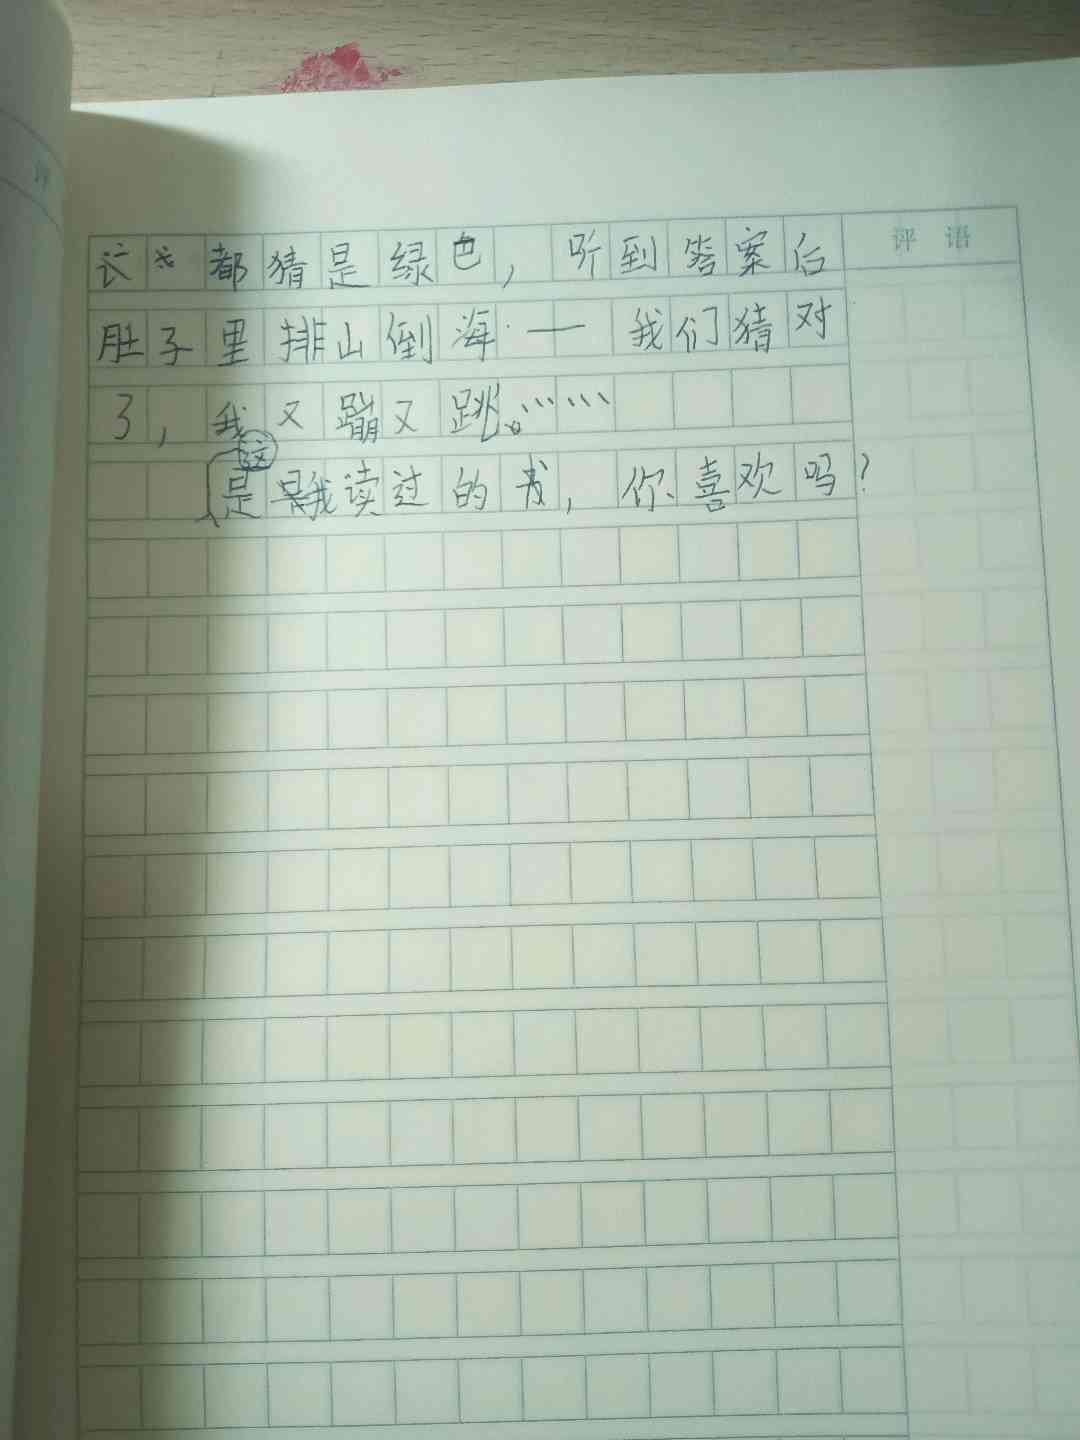 评语
都猜是绿色，听到答案后
肚子里排山倒海·——我们猜对
了，我又蹦又跳。……
这是我读过的书，你喜欢吗？